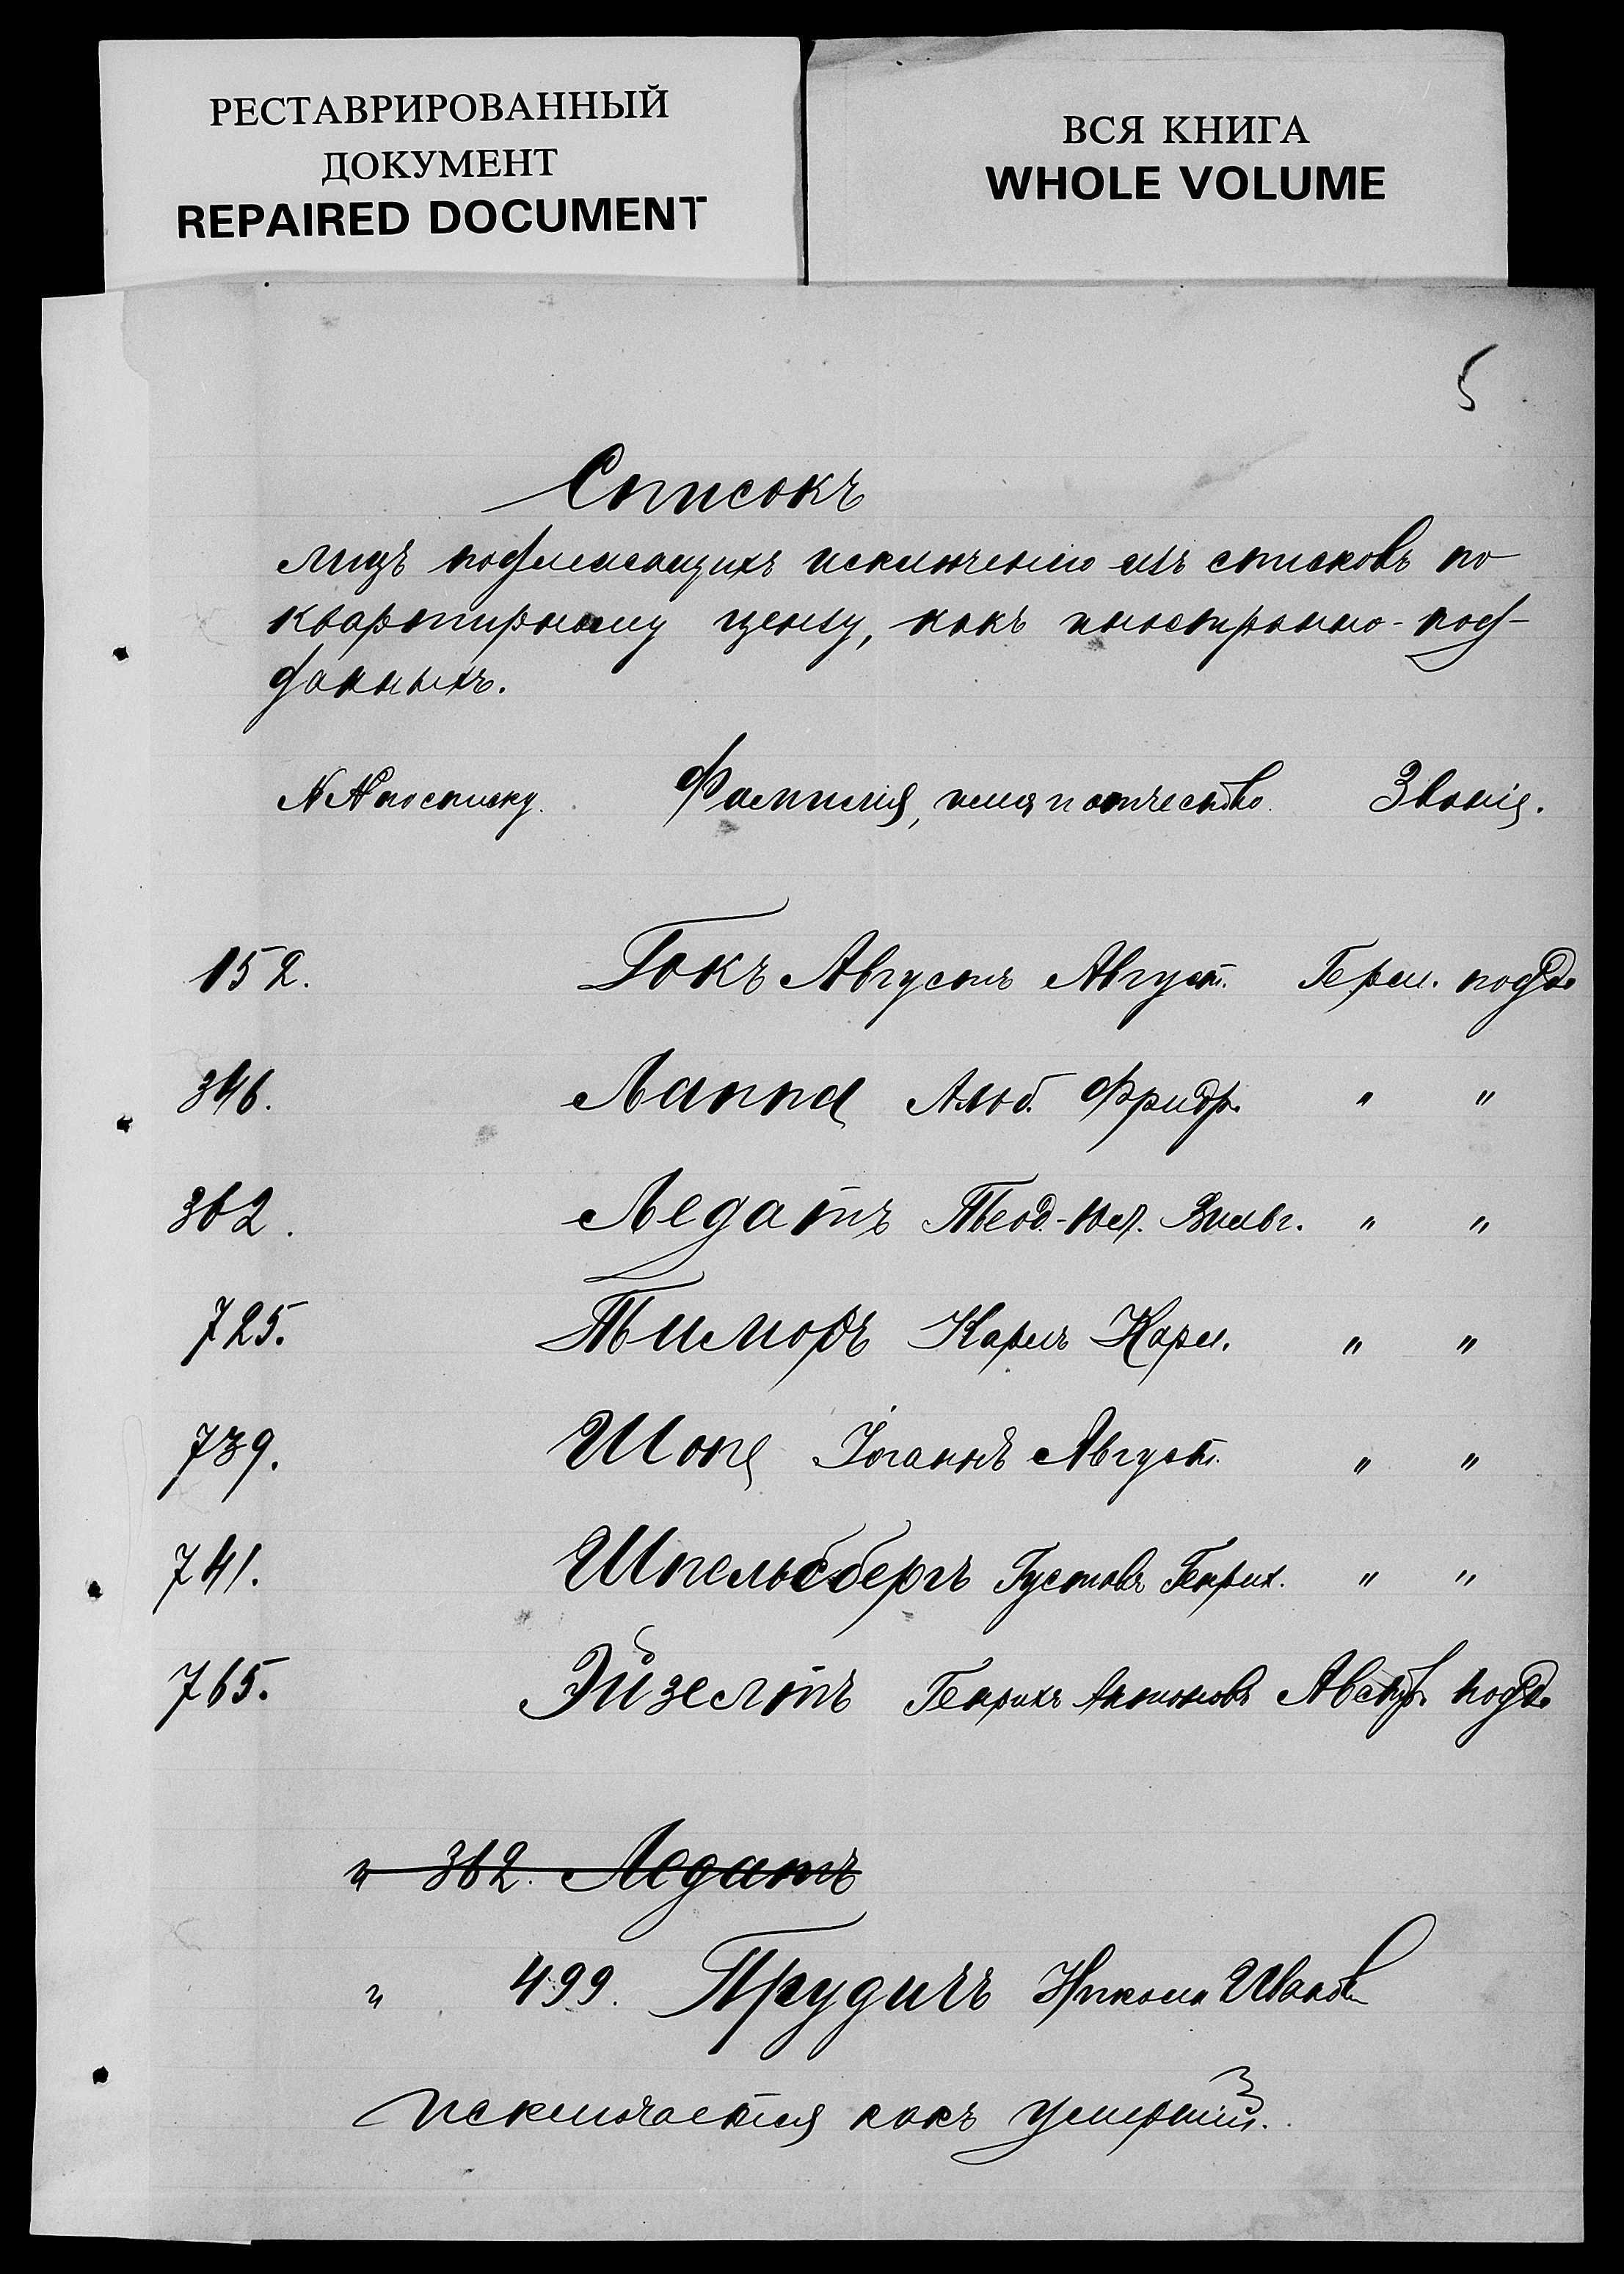 РЕСТАВРИРОВАННЫЙ
ДОКУМЕНТ
REPAIRED DOCUMENT
ВСЯ КНИГА
WHOLE VOLUME
5
Списокъ
лицъ подлежащихъ исключенію изъ списковъ по
квартирному цензу, какъ иностранно-под-
данныхъ.
№№ по списку. Фамилія, имя и отчество. Званія.
152. Гокъ Августъ Август. Герм. подд.
346. Лаппа Альб. Фридр. " "
362. Ледатъ Теод.-Юл. Вильг. " "
725. Тимордъ Карлъ Карл. " "
739. Шопе Іоганнъ Август. " "
741. Шпельсбергъ Густавъ Генрих. " "
765. Эйзелтъ Генрихъ Антоновъ Австр. подд.
" 362. Ледатъ
" 499. Прудичъ Никола Иванов
исключается какъ умершій.